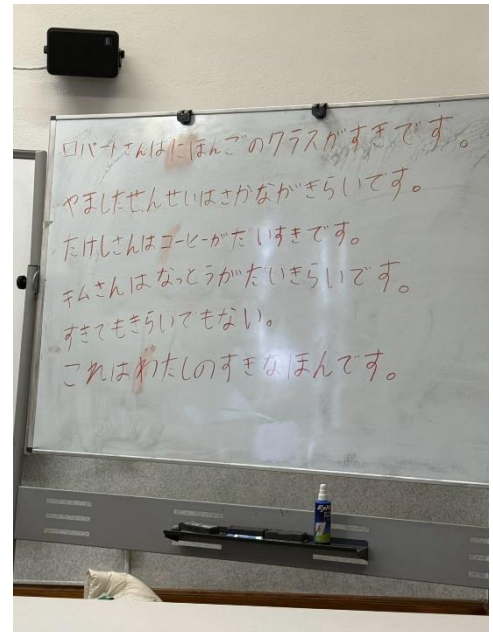 ロバートさんはにほんごのクラスがすきです。
やましたせんせいはさかながきらいです。
たけしさんはコーヒーがだいすきです。
キムさんはなっとうがだいきらいです。
すきでもきらいでもない。
これはわたしのすきなほんです。